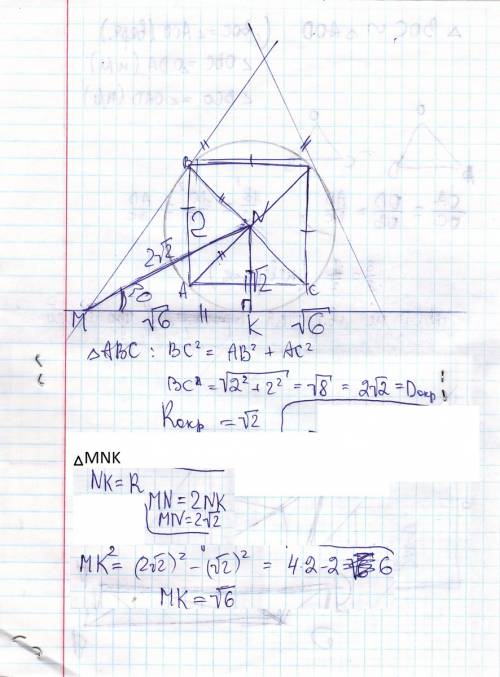 B
N
2
2√2
A
C
√2
30
M
√6
K
√6
△ABC : BC² = AB² + AC²
BC = √2² + 2² = √8 = 2√2 = Dокр
Rокр = √2
△MNK
NK = R
MN = 2NK
MN = 2√2
MK² = (2√2)² - (√2)² = 4·2-2 = 6
MK = √6